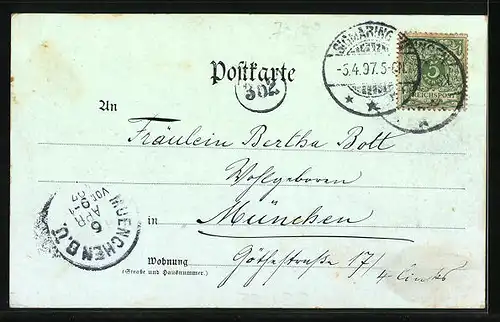 Postkarte
302
SIGMARINGEN
-5.4.97.5-6N.
5
REICHSPOST
An
Fräulein Bertha Bott
Wohlgeboren
in München
Wohnung Göthestraße 17/
(Straße und Hausnummer.) 4 links
MUENCHEN B.Ü.
6
APR
9-
VOR
97